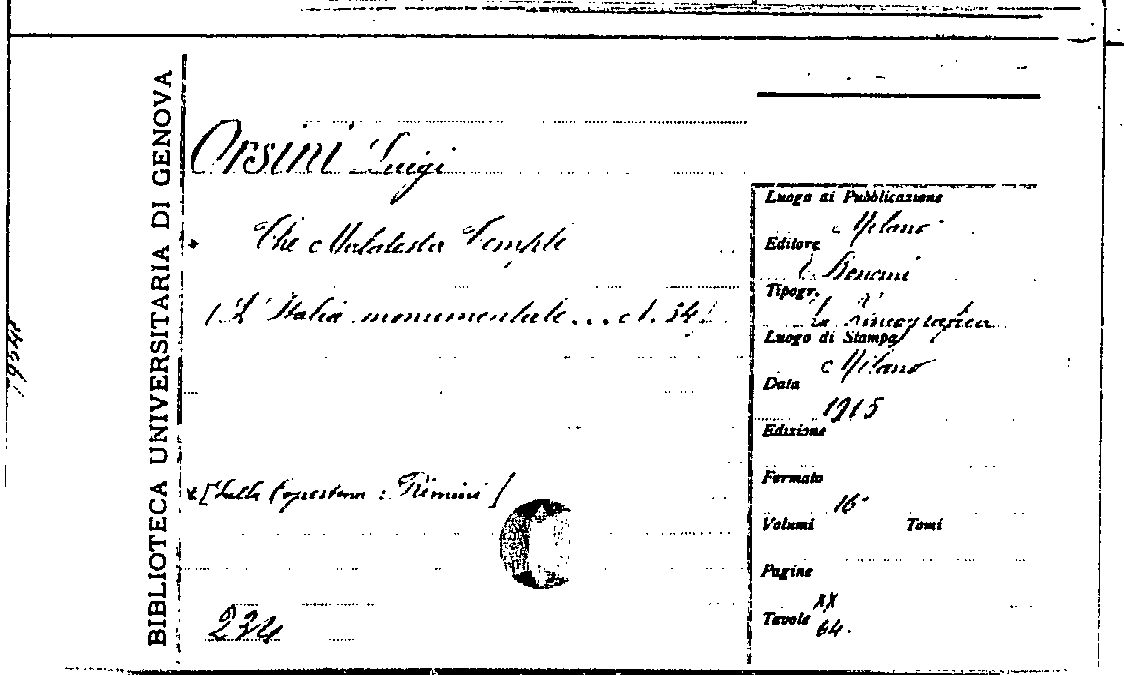 BIBLIOTECA UNIVERSITARIA DI GENOVA
Orsini Luigi
* The Malatesta Temple
(L'Italia monumentale... 34)
*[Sulla Copertina: Rimini]
234
Luogo di Pubblicazione
Milano
Editore
E. Bonomi
Tipogr.
La
Luogo di Stampa
Milano
Data
1915
Edizione
Formato
16°
Volumi Tomi
Pagine
XX
Tavole 64.